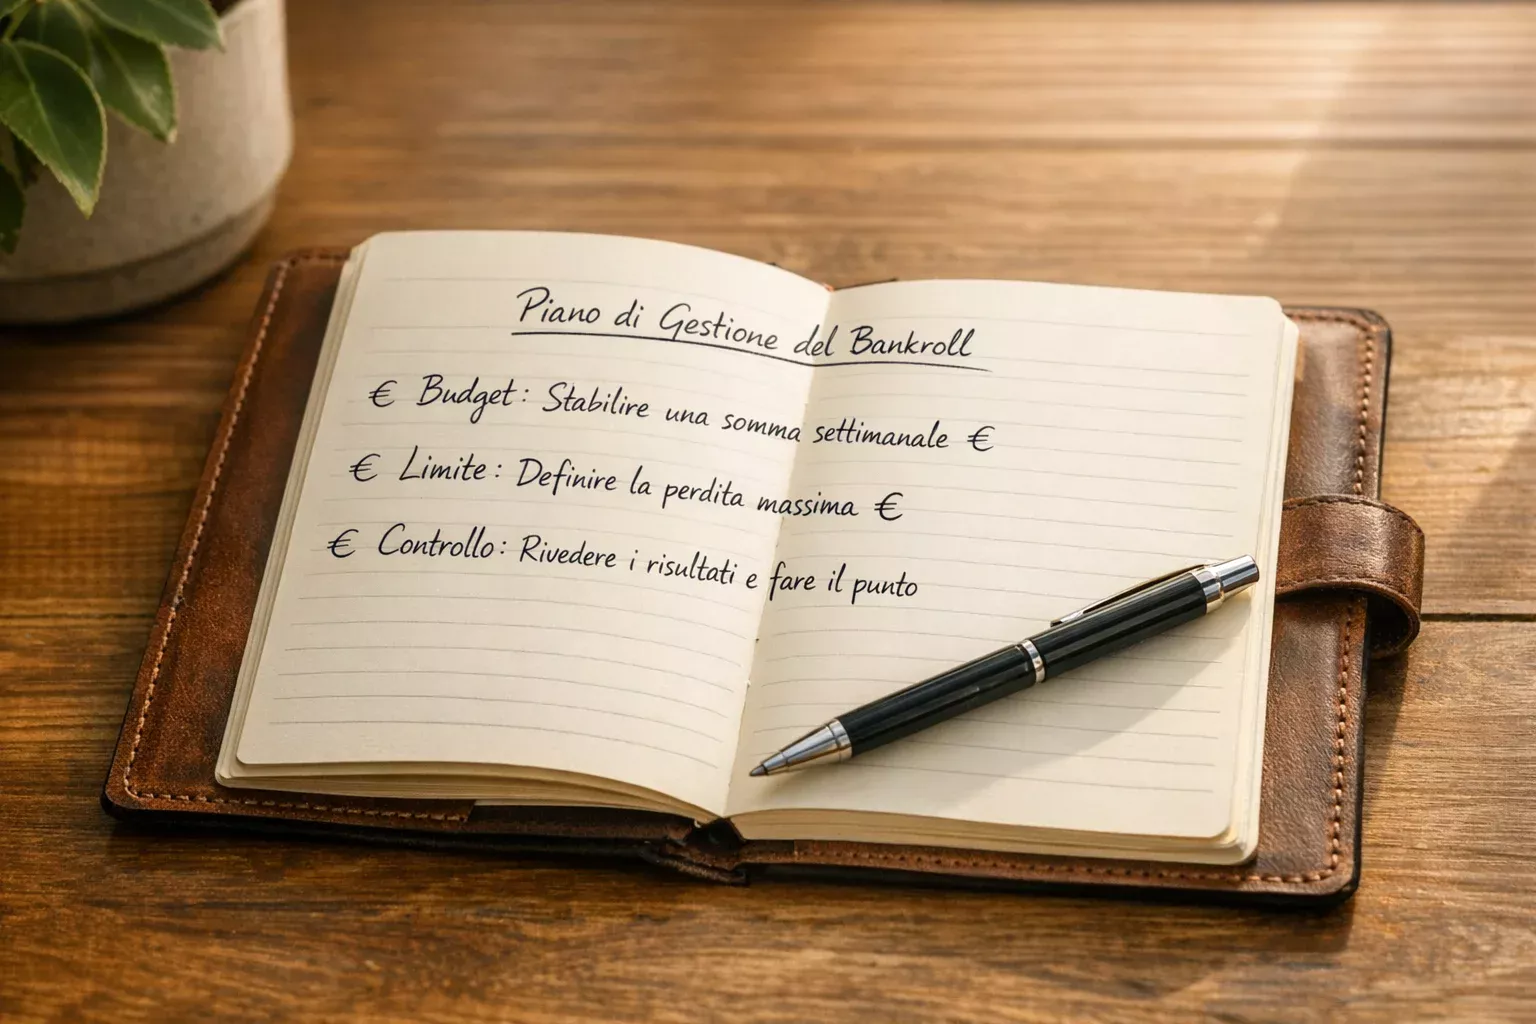 Piano di Gestione del Bankroll
€ Budget: Stabilire una somma settimanale €
€ Limite: Definire la perdita massima €
€ Controllo: Rivedere i risultati e fare il punto